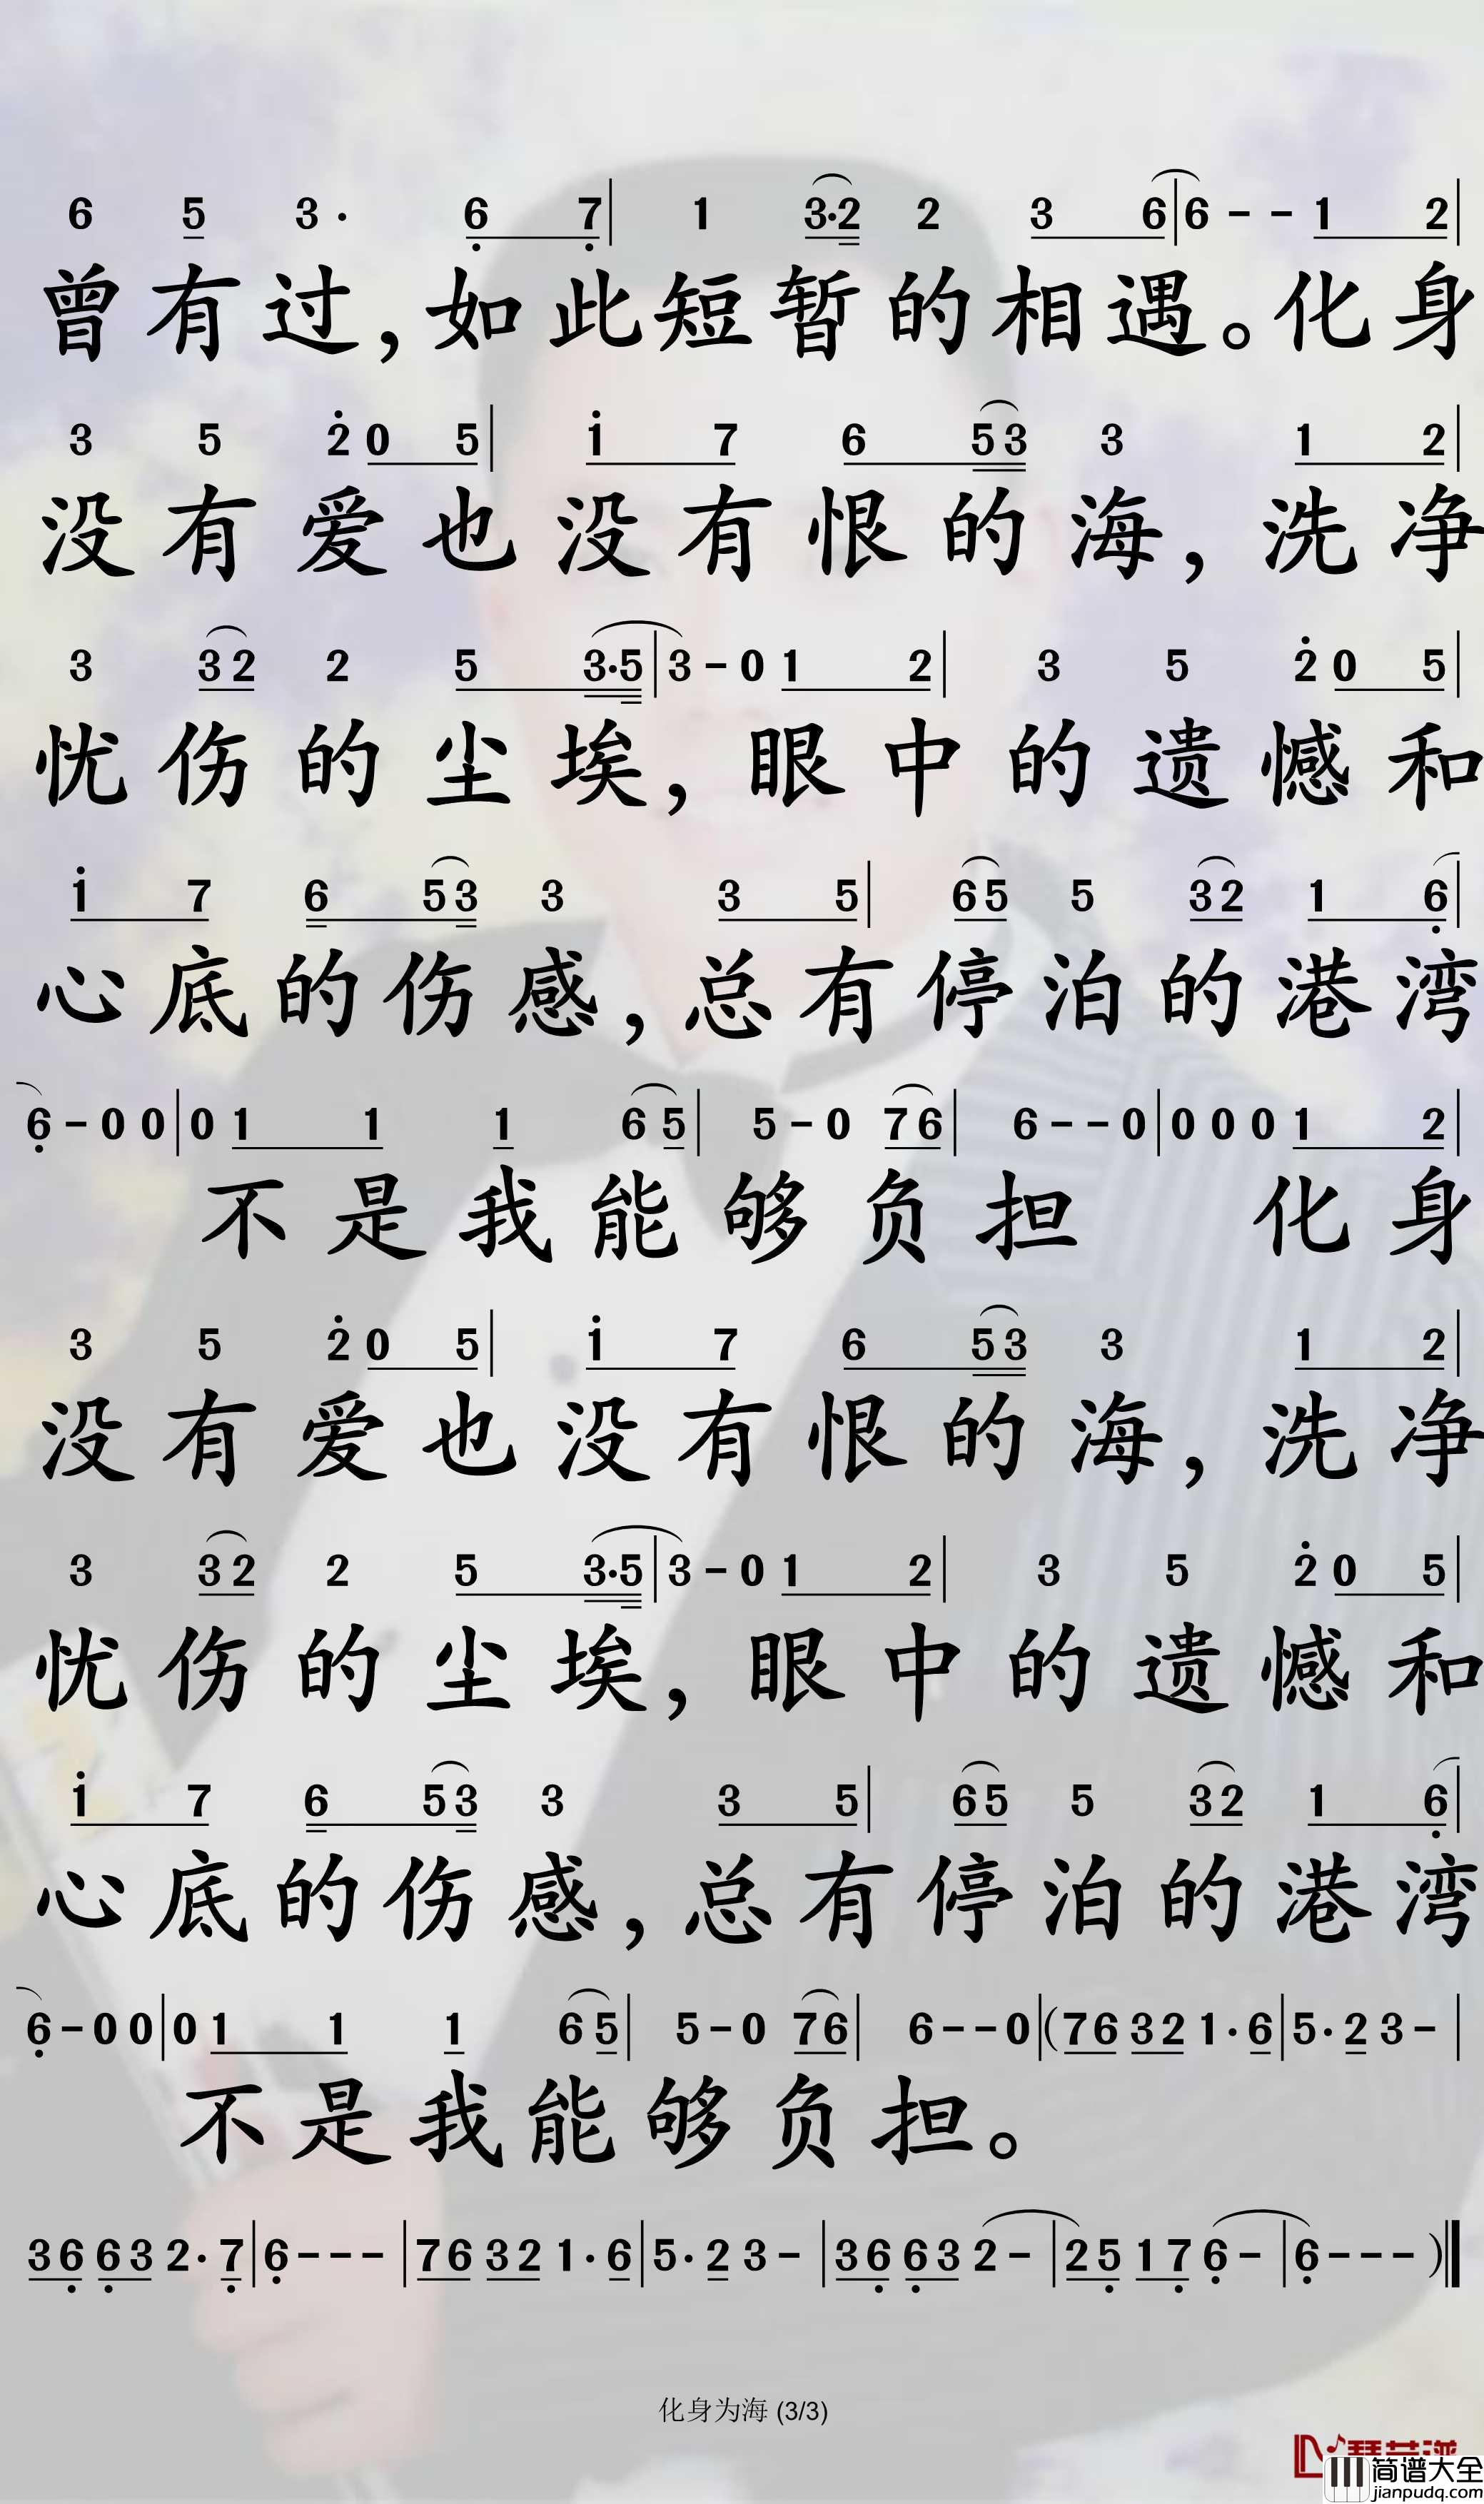 6 5 3· 6 7| 1 3·2 2 3 6|6 - - 1 2|
曾有过，如此短暂的相遇。化身
3 5 2 0 5| 1 7 6 5 3 3 1 2|
没有爱也没有恨的海，洗净
3 3 2 2 5 3·5|3 - 0 1 2| 3 5 2 0 5|
忧伤的尘埃，眼中的遗憾和
1 7 6 5 3 3 3 5| 6 5 5 3 2 1 6|
心底的伤感，总有停泊的港湾
6 - 0 0|0 1 1 1 6 5| 5 - 0 7 6| 6 - - 0|0 0 0 1 2|
不是我能够负担 化身
3 5 2 0 5| 1 7 6 5 3 3 1 2|
没有爱也没有恨的海，洗净
3 3 2 2 5 3·5|3 - 0 1 2| 3 5 2 0 5|
忧伤的尘埃，眼中的遗憾和
1 7 6 5 3 3 3 5| 6 5 5 3 2 1 6|
心底的伤感，总有停泊的港湾
6 - 0 0|0 1 1 1 6 5| 5 - 0 7 6| 6 - - 0|(7 6 3 2 1· 6|5· 2 3 -|
不是我能够负担。
3 6 6 3 2· 7|6 - - -|7 6 3 2 1· 6|5· 2 3 -|3 6 6 3 2 -|2 5 1 7 6 -|6 - - -)‖
化身为海 (3/3)
简谱大全
jianpudq.com